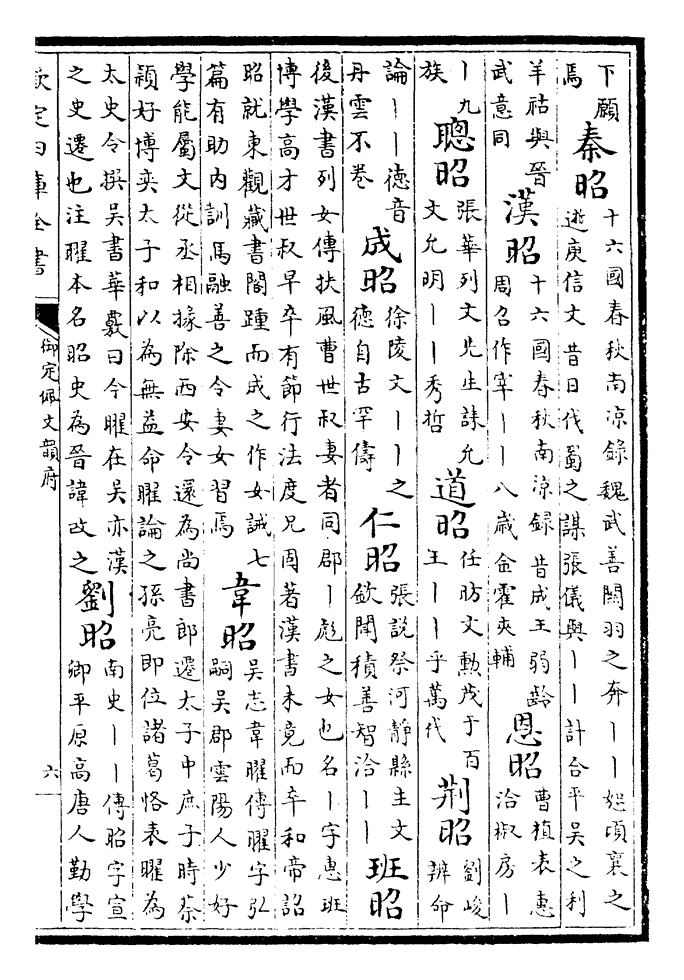 下願
焉
秦昭
十六國春秋南涼錄魏武善關羽之奔丨丨恕頃襄之
逃庾信文昔日代蜀之謀張儀與丨丨計合平吳之利
羊祜與晉
武意同
漢昭
十六國春秋南涼録昔成王弱齡
周召作宰丨丨八歳金霍夾輔
恩昭
曹植表惠
洽椒房丨
丨九
族
聰昭
張華列文先生誄允
文允明丨丨秀哲
道昭
任昉文勲茂于百
王丨丨乎萬代
荆昭
劉峻
辨命
論丨丨德音
丹雲不卷
成昭
徐陵文丨丨之
德自古罕儔
仁昭
張説祭河靜縣主文
欽聞積善智洽丨丨
班昭
後漢書列女傳扶風曹世叔妻者同郡丨彪之女也名丨字惠班
博學高才世叔早卒有節行法度兄固著漢書未竟而卒和帝詔
昭就東觀藏書閣踵而成之作女誡七
篇有助内訓馬融善之令妻女習焉
韋昭
吳志韋曜傳曜字弘
嗣吳郡雲陽人少好
學能屬文從丞相掾除西安令還為尚書郎遷太子中庶子時蔡
穎好博奕太子和以為無益命曜論之孫亮即位諸葛恪表曜為
太史令撰吳書華覈曰今曜在吳亦漢
之史遷也注曜本名昭史為晉諱改之
劉昭
南史丨丨傳昭字宣
卿平原高唐人勤學
欽定四庫全書
御定佩文韻府
六